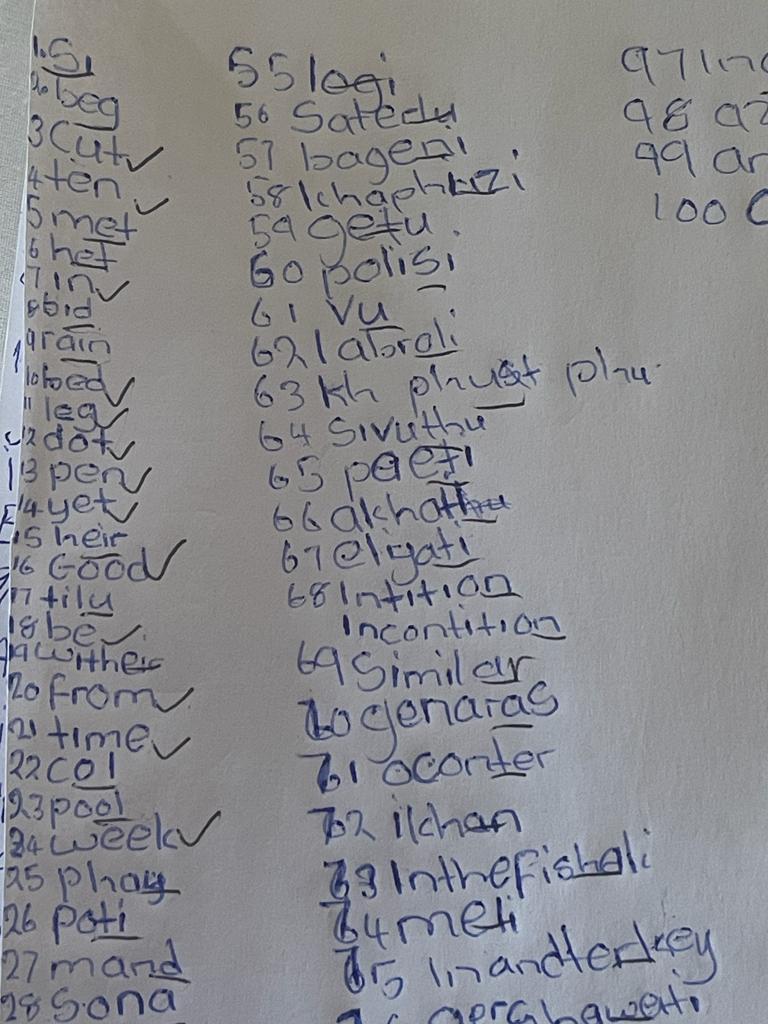 1. Si
2. beg
3 Cut
4 ten
5 met
6 het
7 in
8 bid
9 rain
10 bed
11 leg
12 dot
13 pen
14 yet
15 heir
16 Good
17 tilu
18 be
19 wither
20 from
21 time
22 col
23 pool
24 week
25 phay
26 poti
27 mand
28 Sona
55 logi
56 Satedu
57 bageni
58 khaphizi
59 getu.
60 polisi
61 vu
62 labroli
64 Sivuthu
65 paeti
67 eliyati
68 Intition
Incontition
69 Similar
70 genaras
71 oconter
72 ikhan
73 Inthefishali
74 meti
75 Inandterkey
97
98
99
100